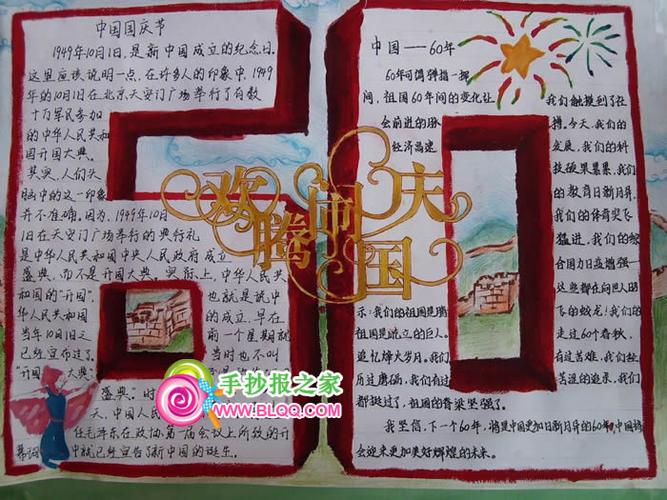 中国国庆节
1949年10月1日,是新中国成立的纪念日。
这里应该说明一点,在许多人的印象中,1949
年的10月1日在北京天安门广场举行了有数
十万军民参加
的中华人民共和
国开国大典。
其实,人们头
脑中的这一印象
并不准确。因为,1949年10月
1日在天安门广场举行的典行礼
是中华人民共和国中央人民政府成立
盛典,而不是开国大典。实际上,中华人民共
和国的“开国”,也就是说中
华人民共和国的成立,早在
当年10月1日之前一个星期就
已经宣布过了。当时也不叫
“开国大典”
盛典。时
天,中国人民
任毛泽东在政协第一届会议上所致的开
幕词中就已经宣告了新中国的诞生。
欢腾闹国庆
中国——60年
60年可谓弹指一挥
间,祖国60年间的变化让
会前进的脉
经济高速
我们触摸到了社
搏。今天,我们的
发展,我们的科
技硕果累累,我们
的教育日新月异,
我们的体育突飞
猛进,我们的综
合国力日益增强——
这些都在向世人昭
示:我们的祖国是腾飞的蛟龙!我们的
祖国是屹立的巨人。走过60个春秋,
追忆烽火岁月,我们有过苦难,我们经
历过磨砺,我们有过苦涩的追求,我们
都挺过了,祖国的脊梁坚强了。
我坚信,下一个60年,将是中国更加日新月异的60年,中国将
会迎来更加美好辉煌的未来。
手抄报之家
WWW.BLQQ.COM